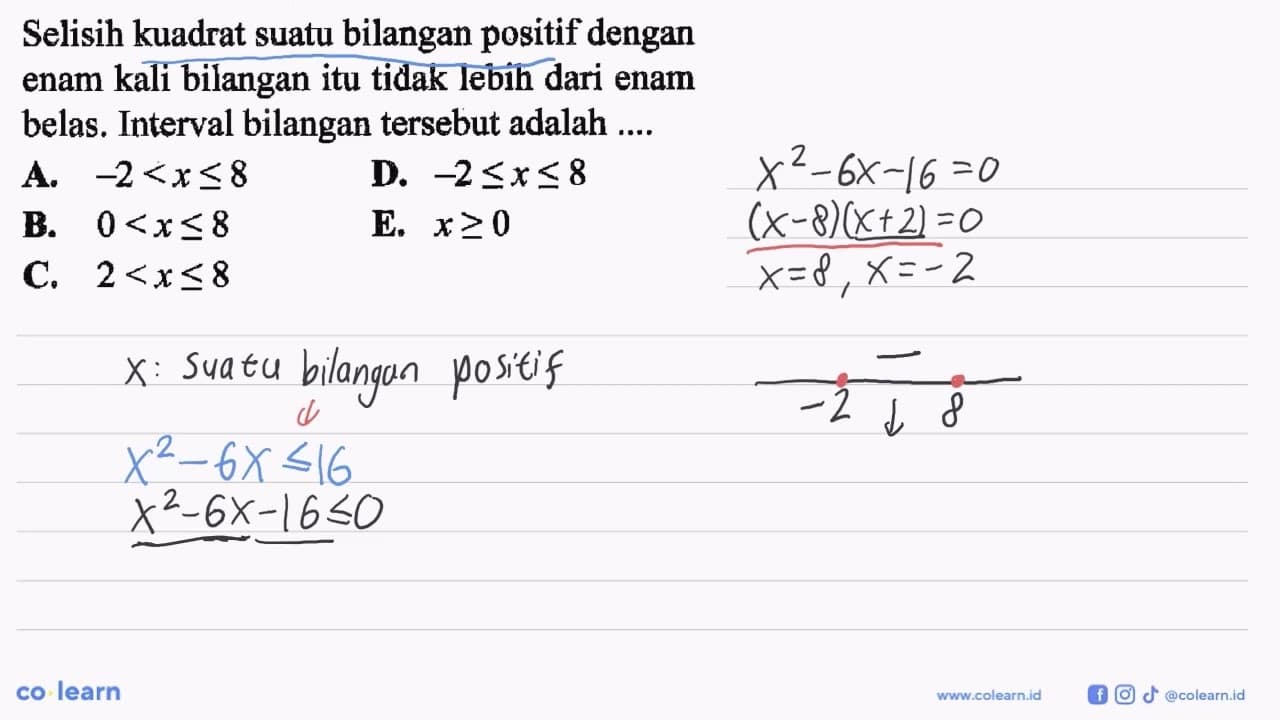 Selisih kuadrat suatu bilangan positif dengan
enam kali bilangan itu tidak lebih dari enam
belas. Interval bilangan tersebut adalah ....
A. –2 < x ≤ 8 D. –2 ≤ x ≤ 8
B. 0 < x ≤ 8 E. x ≥ 0
C. 2 < x ≤ 8
x² – 6x – 16 = 0
(x – 8)(x + 2) = 0
x = 8, x = – 2
x: suatu bilangan positif
x² – 6x ≤ 16
x² – 6x – 16 ≤ 0
–
–2 ↓ 8
co·learn
www.colearn.id
@colearn.id